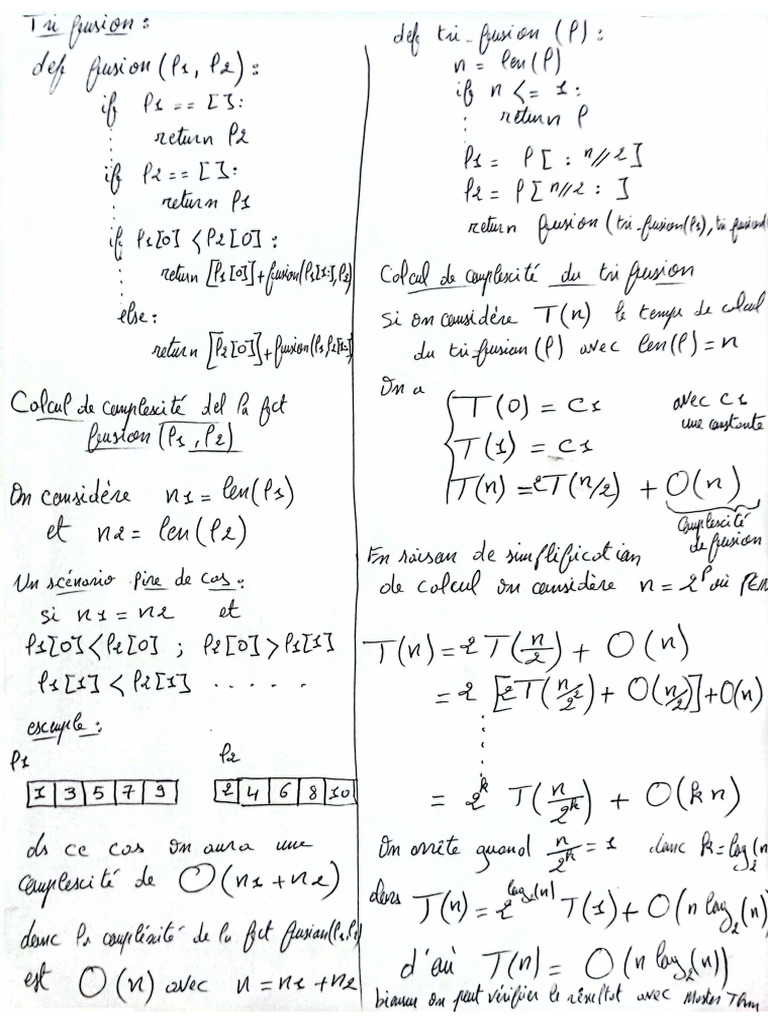 Tri fusion :
def fusion (l1, l2) :
if l1 == [] :
return l2
if l2 == [] :
return l1
if l1[0] < l2[0] :
return [l1[0]]+fusion(l1[1:], l2)
else :
return [l2[0]]+fusion(l1, l2[1:])
Calcul de complexité del la fct
fusion (l1, l2)
On considère n1 = len(l1)
et n2 = len(l2)
Un scénario pire de cas :
si n1 = n2 et
l1[0]<l2[0] ; l2[0]>l1[1]
l1[1] < l2[1] . . . . .
exemple :
l1 l2
1 3 5 7 9 2 4 6 8 10
ds ce cas on aura une
complexité de O(n1 + n2)
donc la compléxité de la fct fusion(l1,l2)
est O(n) avec n = n1 + n2
def tri_fusion (l) :
n = len(l)
if n <= 1 :
return l
l1 = l[ : n//2]
l2 = l[n//2 : ]
return fusion (tri_fusion(l1), tri_fusion(
Calcul de complexité du tri fusion
Si on considère T(n) le temps de calcul
du tri_fusion(l) avec len(l) = n
On a
T(0) = c1 avec c1
une constante
T(1) = c1
T(n) = 2T(n/2) + O(n)
complexité
de fusion
En raison de simplification
de calcul on considère n = 2^p où p∈N
T(n) = 2 T(n/2) + O(n)
= 2 [2T(n/2^2) + O(n/2)] + O(n)
= 2^k T(n/2^k) + O(k n)
On arrête quand n/2^k = 1 donc k = log_2(n
dans T(n) = 2^log_2(n) T(1) + O(n log_2(n)
d'où T(n) = O(n log_2(n))
on peut vérifier le résultat avec Master Thm